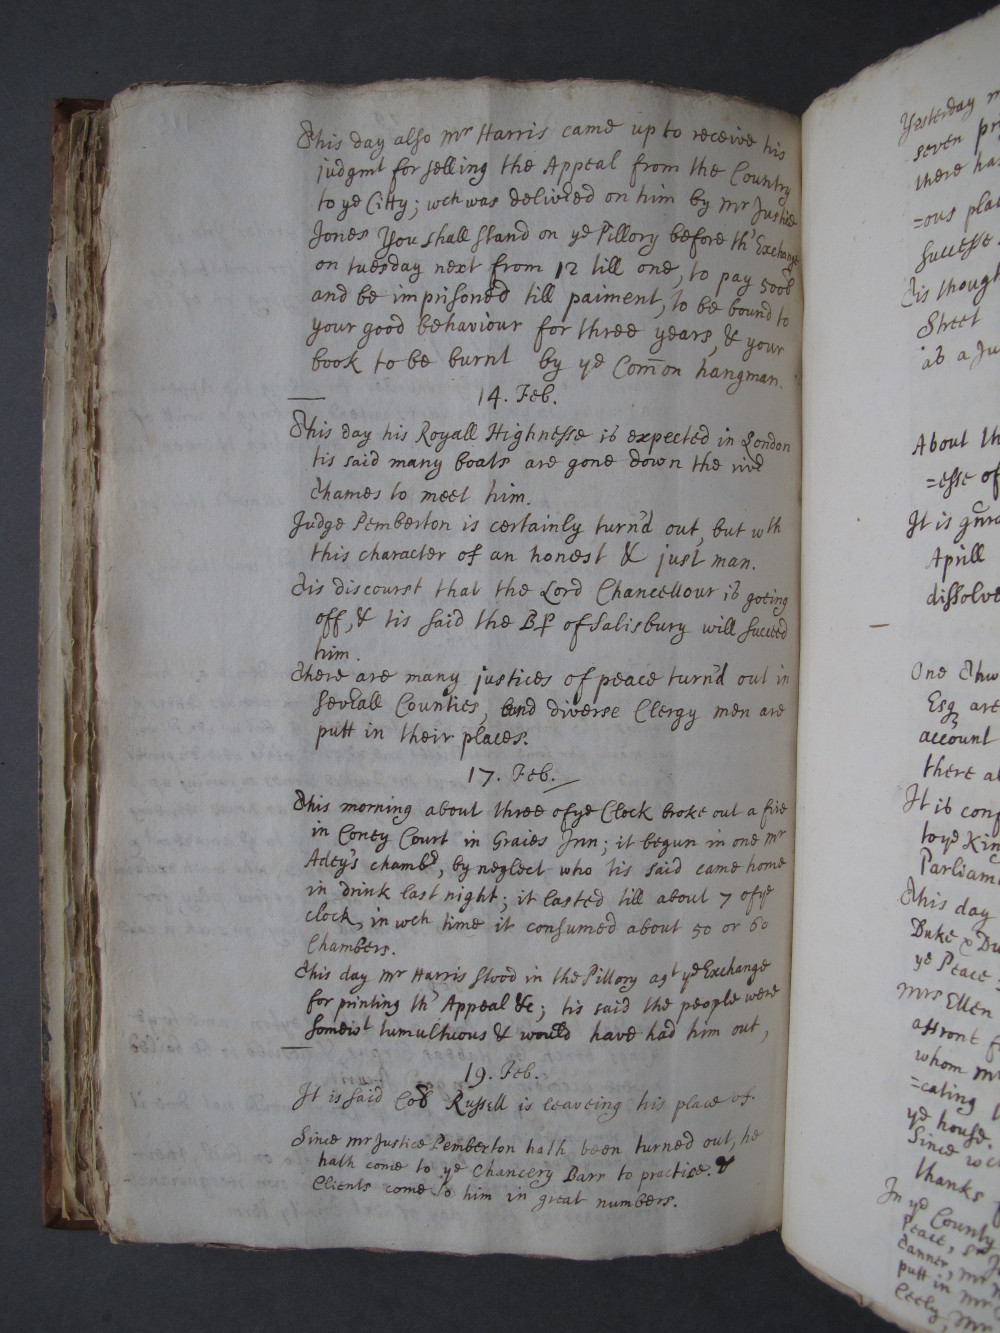 This day also Mr Harris came up to receive his
judgmt for selling the Appeal from the Country
to ye Citty; wch was delivered on him by Mr Justice
Jones You shall stand on ye Pillory before th' Exchange
on tuesday next from 12 till one, to pay 500l
and be imprisoned till paiment, to be bound to
your good behaviour for three years, & your
book to be burnt by ye Com̄on hangman.
14. Feb.
This day his Royall Highnesse is expected in London
tis said many boats are gone down the river
Thames to meet him.
Judge Pemberton is certainly turn'd out, but wth
this character of an honest & just man.
Tis discourst that the Lord Chancellour is goeing
off, & tis said the Bp of Salisbury will succeed
him.
There are many justices of peace turn'd out in
severall Counties, and diverse Clergy men are
putt in their places.
17. Feb.
This morning about three of ye Clock broke out a fire
in Coney Court in Graies Inn; it begun in one Mr
Adey's chamber, by neglect who tis said came home
in drink last night; it lasted till about 7 of ye
clock, in wch time it consumed about 50 or 60
Chambers.
This day Mr Harris stood in the Pillory agt ye Exchange
for printing th' Appeal &c; tis said the people were
somewt tumultuous & would have had him out,
19. Feb.
It is said Col Russell is leaveing his place of.
Since Mr Justice Pemberton hath been turned out, he
hath come to ye Chancery Barr to practise. &
Clients come to him in great numbers.
Yesterday
seven
there
=ous
successe
Tis
Street
as a
About
=esse of
It is
Aprill
dissolve
One
Esq are
account
there
It is
to ye
This day
Duke & Du
ye Peace
Mrs Ellen
affront
whom
=cating
ye house.
Since
thanks
In ye County
Peace, Sr
Tanner, Mr
putt in Mr